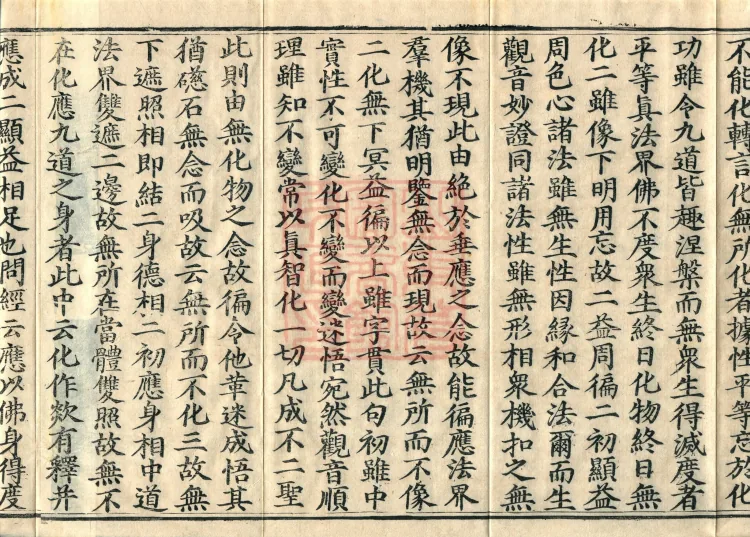 不能化轉言化無所化者據性平等忘於化
功雖令九道皆趣涅槃而無衆生得滅度者
平等眞法界佛不度衆生終日化物終日無
化二雖像下明用忘故二益周徧二初顯益
周色心諸法雖無生性因緣和合法爾而生
觀音妙證同諸法性雖無形相衆機扣之無
像不現此由絶於垂應之念故能徧應法界
羣機其猶明鑒無念而現故云無所而不像
二化無下冥益徧以上雖字貫此句初雖中
實性不可變化不變而變迷悟宛然觀音順
理雖知不變常以眞智化一切凡成不二聖
此則由無化物之念故徧令他革迷成悟其
猶礠石無念而吸故云無所而不化三故無
下遮照相即結二身德相二初應身相中道
法界雙遮二邊故無所在當體雙照故無不
在化應九道之身者此中云化作欻有釋并
應成二顯益相足也問經云應以佛身得度